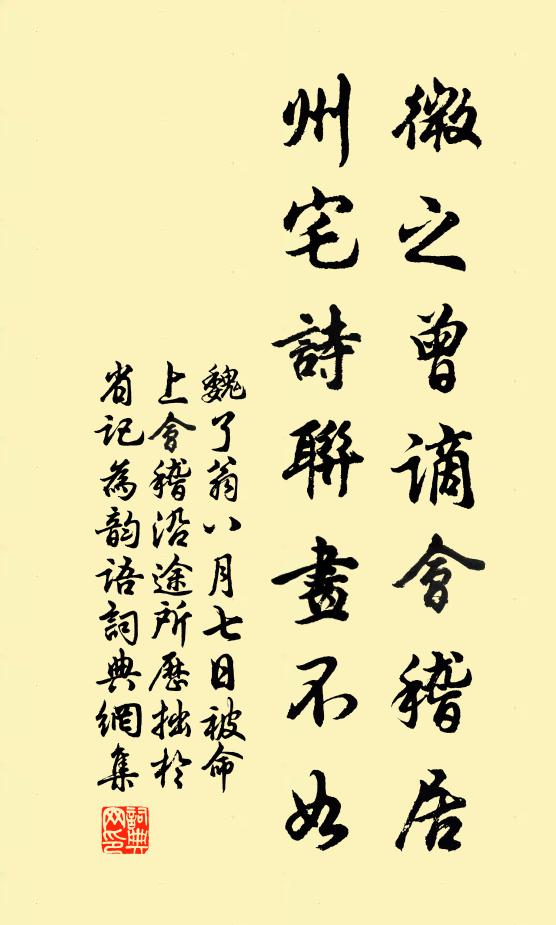 微之曾谪會稽居
州宅詩聯畫不如
魏了翁八月七日被命
上會稽沿途所歷拙於
省記為韵語詞典網集
詞典網印